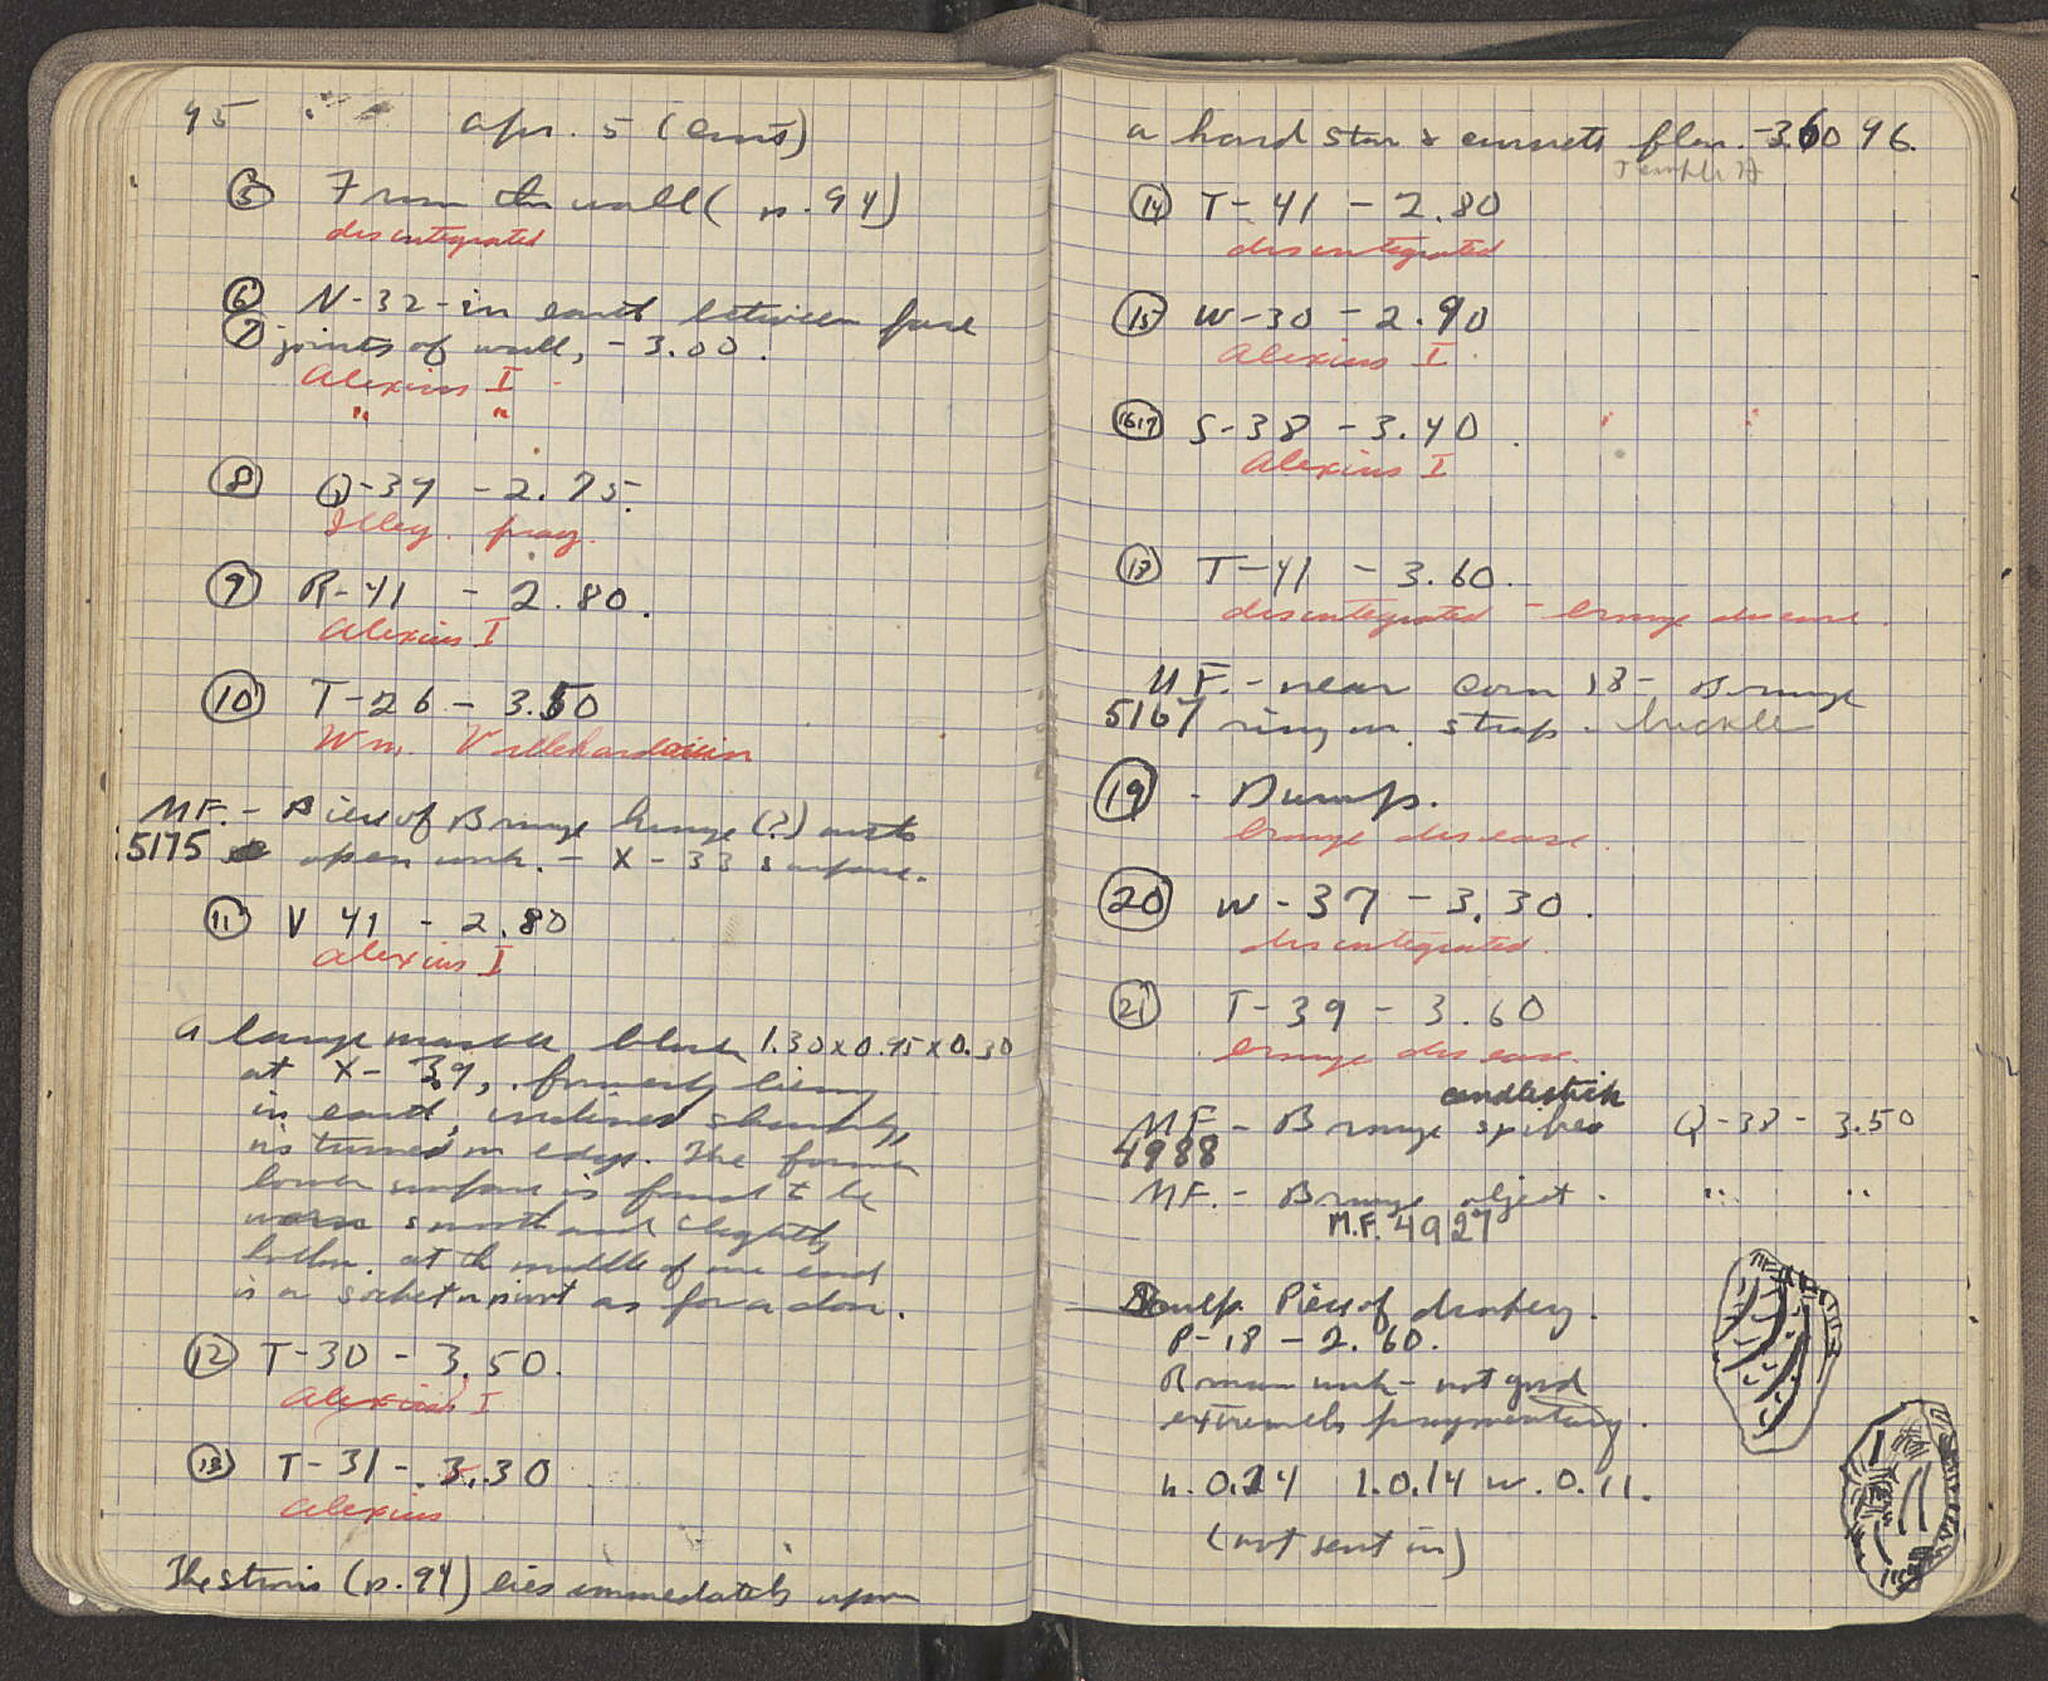 95 Apr. 5 (Cont)
⑤ From the wall (p. 94)
disintegrated
⑥ N-32-in earth between face
⑦ joints of wall, -3.00.
Alexius I
" "
⑧ Q-39 -2.75.
Illeg. frag.
⑨ R-41 - 2.80.
Alexius I
⑩ T-26 - 3.50
Wm. Villehardouin
MF. - Piece of Bronze hinge (?) with
5175 open work. - X-33 surface.
⑪ V 41 - 2.80
Alexius I
A large marble block 1.30x0.95x0.30
at X-39, formerly lying
in earth, inclined sharply,
is turned on edge. The former
lower surface is found to be
worn smooth and slightly
hollow. At the middle of one end
is a socket or pivot as for a door.
⑫ T-30 - 3.50.
Alexius I
⑬ T-31 - 3.30
Alexius
The stosis (p. 94) lies immediately upon
a hard stone & cement floor. -3.60 96.
Temple H
⑭ T-41 - 2.80
disintegrated
⑮ W-30 - 2.90
Alexius I
16 17 S-38 - 3.40.
Alexius I " "
⑱ T-41 - 3.60.
disintegrated - bronze disease.
MF. - near Corn 18 - Bronze
5167 ring on strap. buckle
⑲ - Dump.
bronze disease.
⑳ W-37 - 3.30.
disintegrated.
㉑ T-39 - 3.60
bronze disease.
candlestick
MF - Bronze spike Q-38 - 3.50
4988
MF. - Bronze object. " "
M.F. 4927
Sculp. Piece of drapery.
P-18 - 2.60.
Roman work - not good
extremely fragmentary.
h. 0.24 l. 0.14 w. 0.11.
(not sent in)